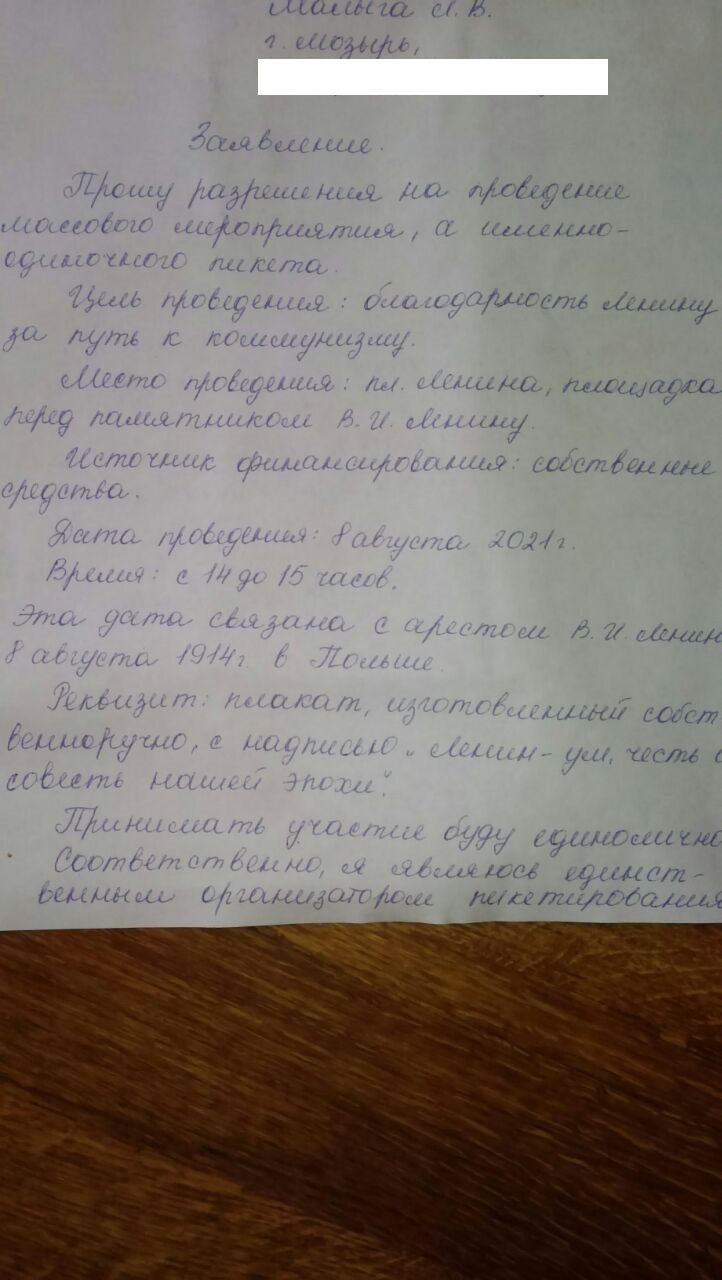 Малыга Л. В.
г. Мозырь,
Заявление.
Прошу разрешения на проведение
массового мероприятия, а именно-
одиночного пикета.
Цель проведения: благодарность Ленину
за путь к коммунизму.
Место проведения: пл. Ленина, площадка
перед памятником В. И. Ленину.
Источник финансирования: собственные
средства.
Дата проведения: 8 августа 2021г.
Время: с 14 до 15 часов.
Эта дата связана с арестом В. И. Ленин
8 августа 1914г. в Польше.
Реквизит: плакат, изготовленный собст
венноручно, с надписью „Ленин - ум, честь
совесть нашей эпохи“.
Принимать участие буду единолично
Соответственно, я являюсь единст-
венным организатором пикетирования